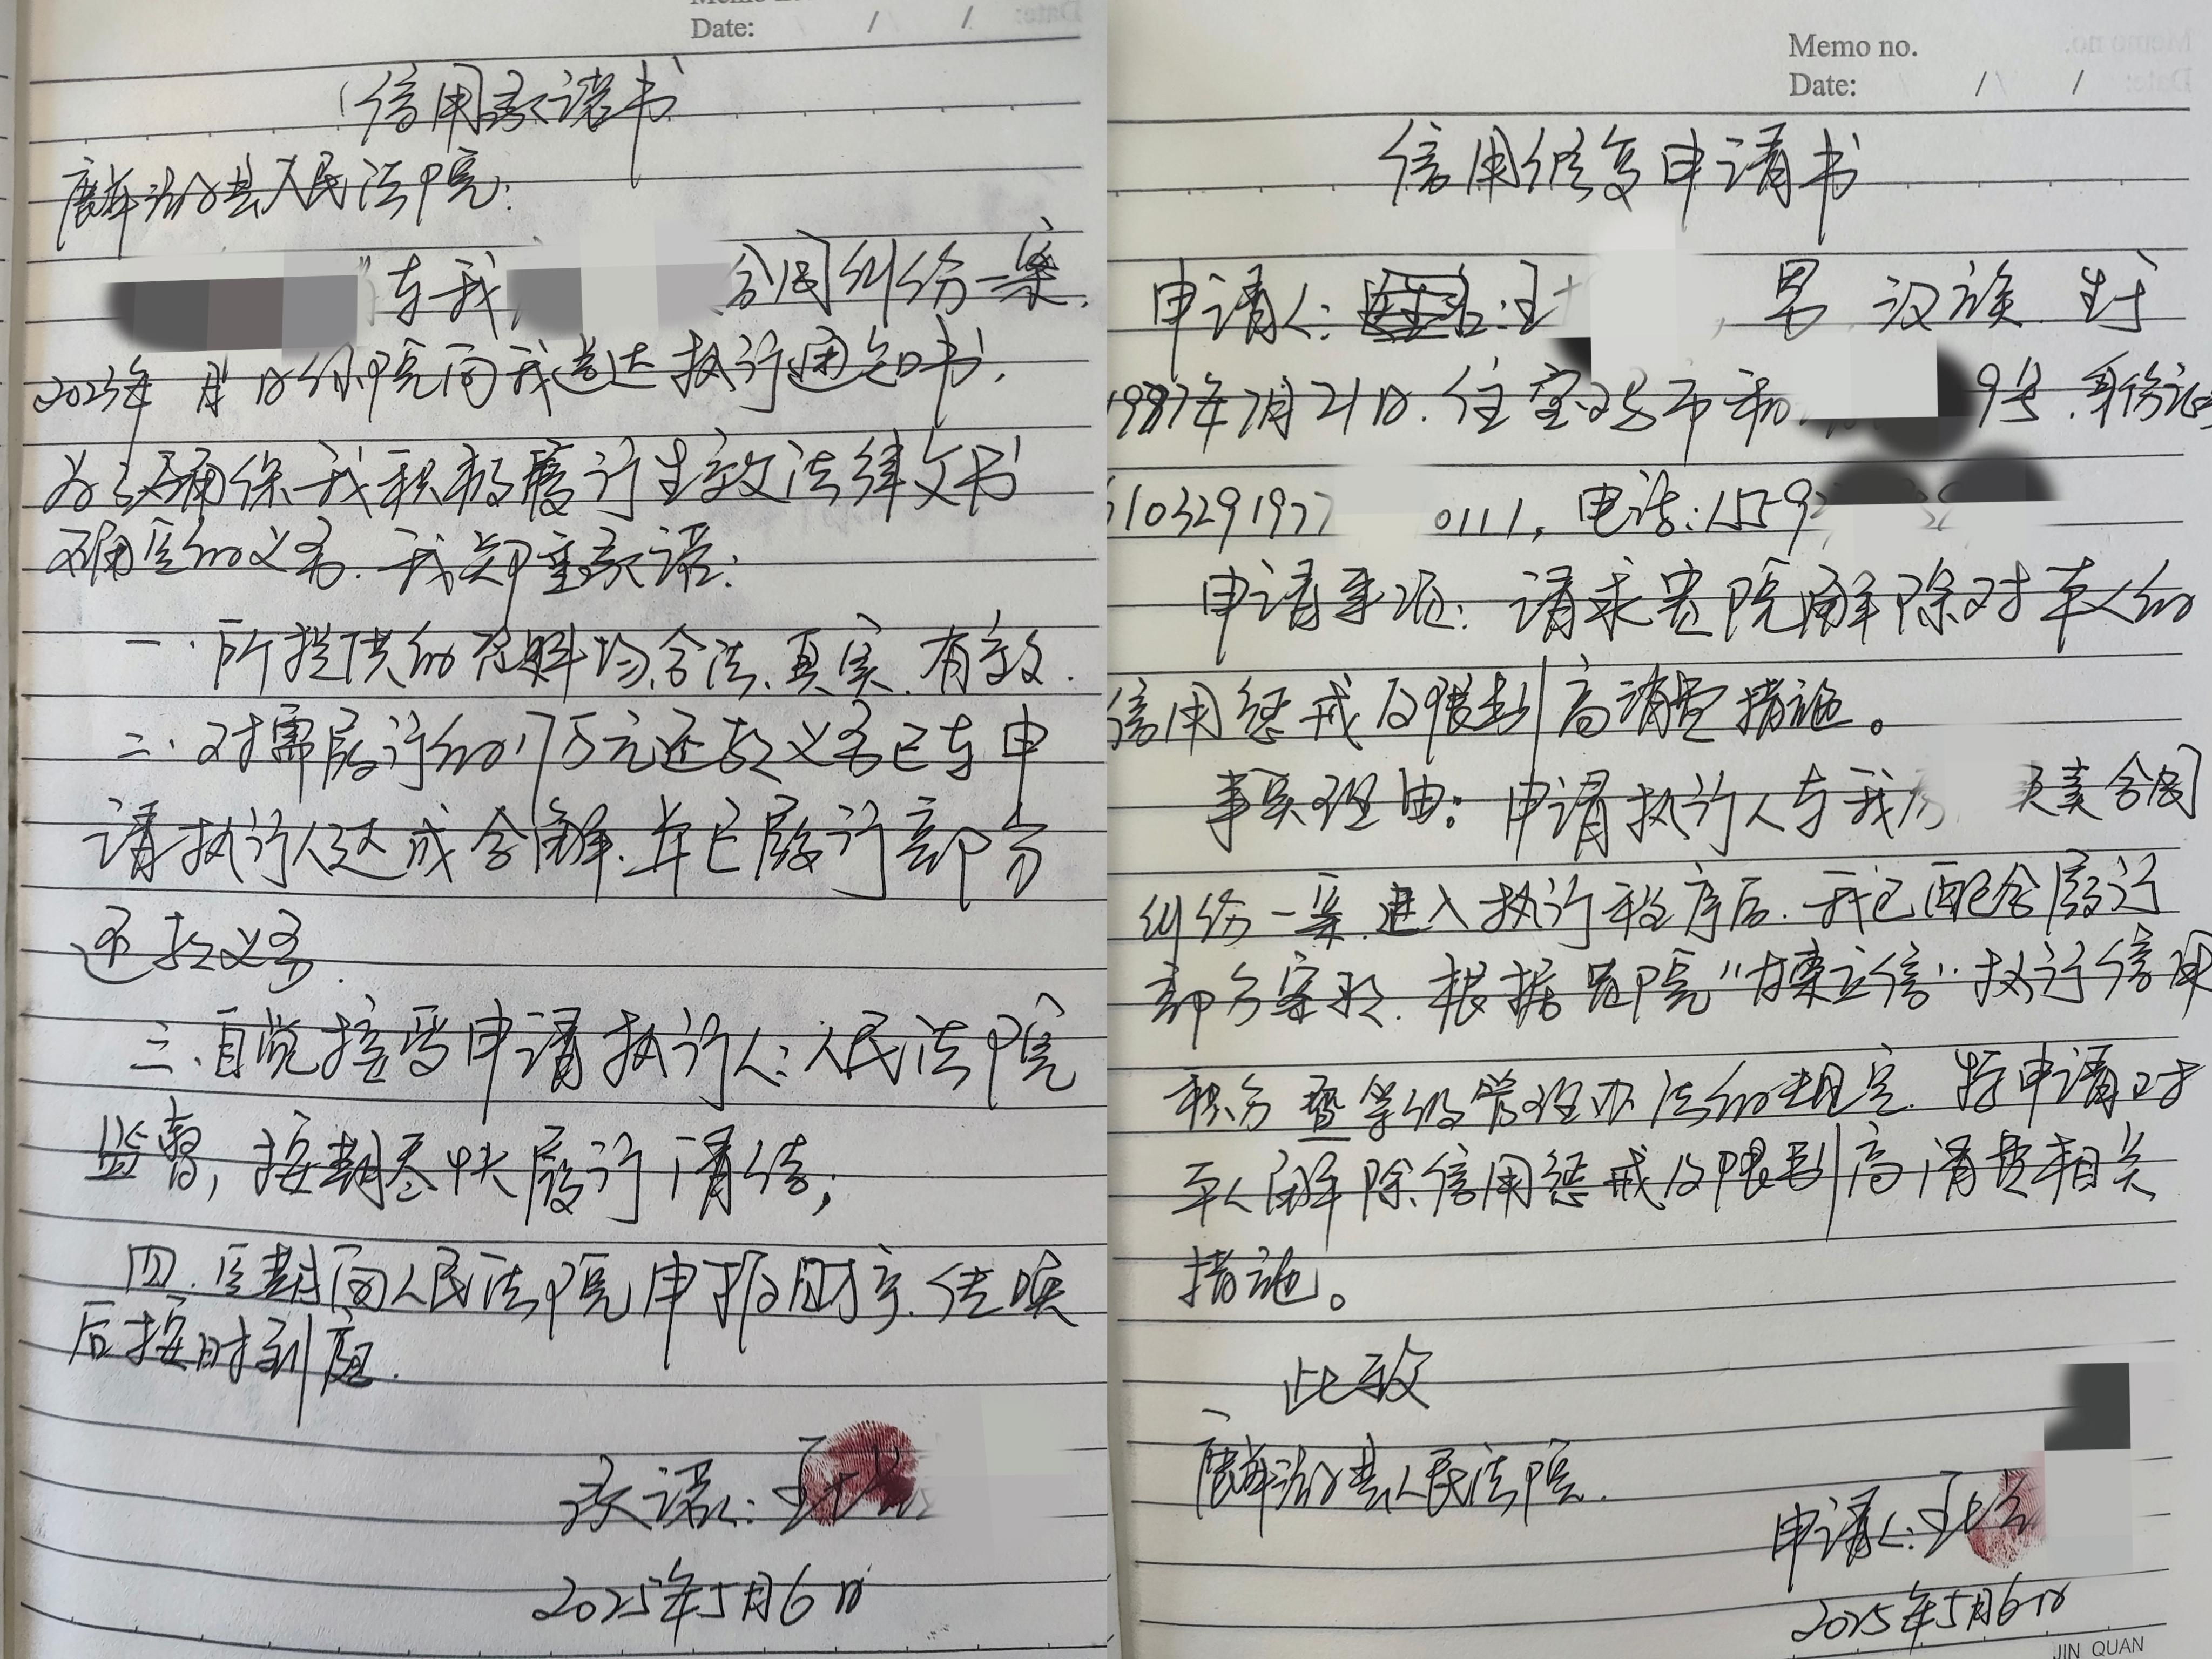 Date: / /
信用承诺书
麟游县人民法院:
与我 合同纠纷一案,
2025年 月 日你院向我送达执行通知书,
为了确保我积极履行生效法律文书
确定的义务,我郑重承诺:
一、所提供的资料均合法、真实、有效.
二、对需履行的17万元还款义务已与申
请执行人达成和解,并已履行部分
还款义务.
三、自觉接受申请执行人、人民法院
监督,按期尽快履行清结;
四、定期向人民法院申报财产,传唤
后按时到庭.
承诺人: 王
2025年5月6日
Memo no.
Date: / /
信用修复申请书
申请人: 王 ,男 汉族 生于
1987年7月21日.住宝鸡市 9号,身份证
610329197 0111,电话:1559
申请事项: 请求贵院解除对本人的
信用惩戒及限制高消费措施。
事实理由: 申请执行人与我 买卖合同
纠纷一案,进入执行程序后,我已配合履行
部分案款.根据贵院“ 立信”执行信用
积分暨等级管理办法的规定,特申请对
本人解除信用惩戒及限制高消费相关
措施。
此致
麟游县人民法院.
申请人: 王
2025年5月6日
JIN QUAN